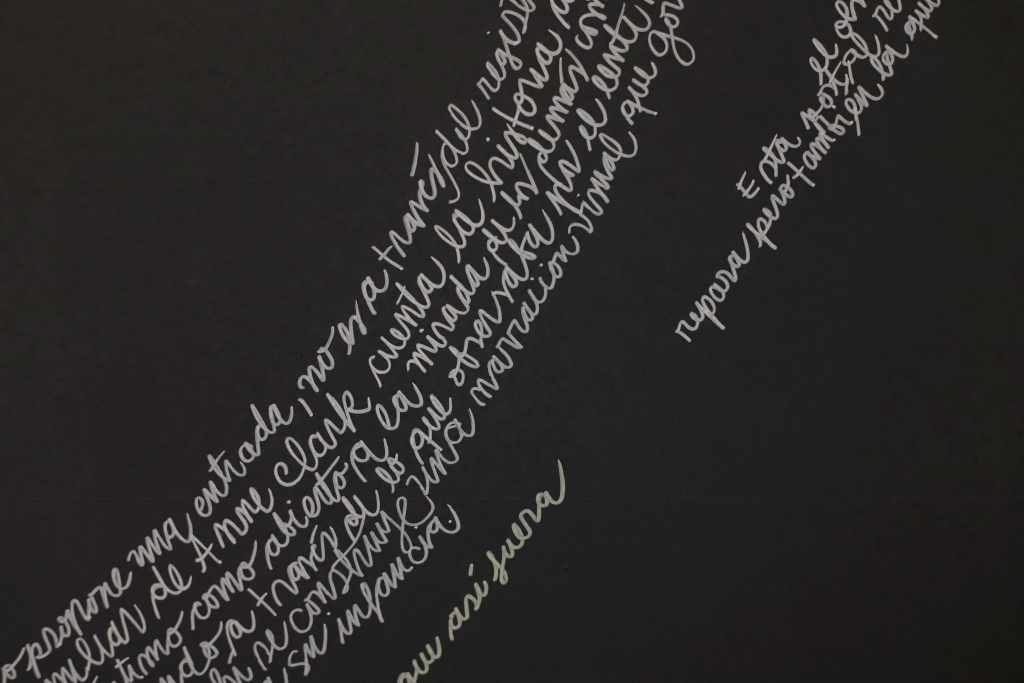 propone una entrada, no es a través del regist
de Anne Clark cuenta la historia a
timo como abierto a la mirada de los demás, com
a través de lo que observaba para el lente
se construye una narración visual que go
su infancia.
que así fuera
Esta nostal
repara pero también la que